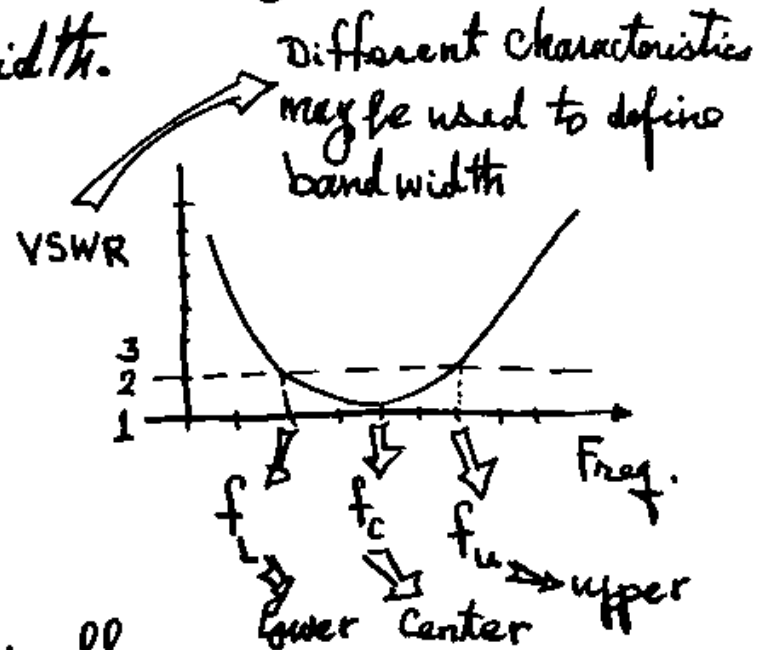 idth.
Different characteristics
may be used to define
bandwidth
VSWR
3
2
1
Freq.
fL
fc
fu
upper
Lower
Center